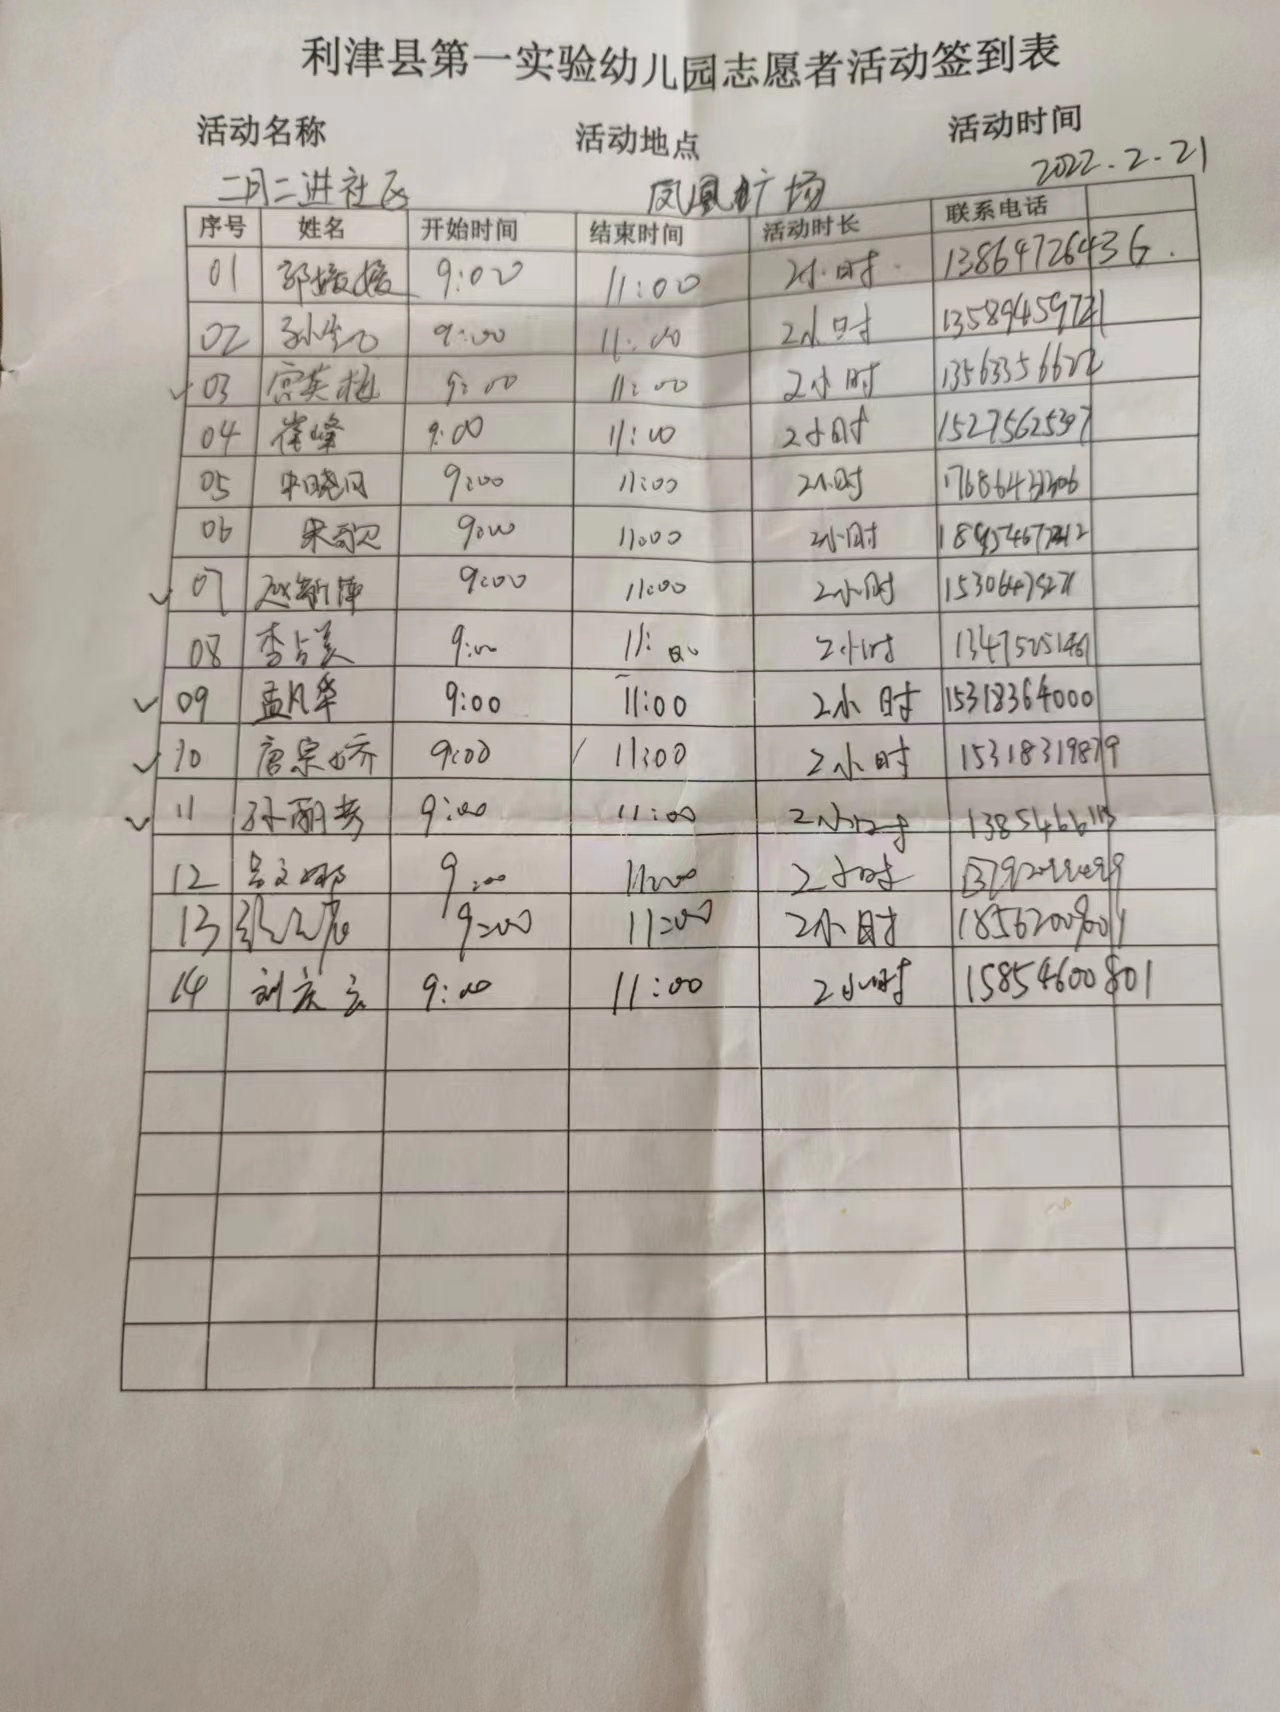 利津县第一实验幼儿园志愿者活动签到表
活动名称 活动地点 活动时间
二月二进社区 凤凰广场 2022.2.21
序号 姓名 开始时间 结束时间 活动时长 联系电话
01 9:00 11:00 2小时 13864726436
02 9:00 11:00 2小时 13589459721
03 宫英梅 9:00 11:00 2小时 13563356622
04 崔峰 9:00 11:00 2小时 15275625397
05 9:00 11:00 2小时
06 9:00 11:00 2小时
07 9:00 11:00 2小时
08 李占美 9:00 11:00 2小时
09 孟凡华 9:00 11:00 2小时 15318364000
10 唐宗娇 9:00 11:00 2小时 15318319879
11 9:00 11:00 2小时
12 吕文娜 9:00 11:00 2小时
13 9:00 11:00 2小时
14 刘庆云 9:00 11:00 2小时 15854600801